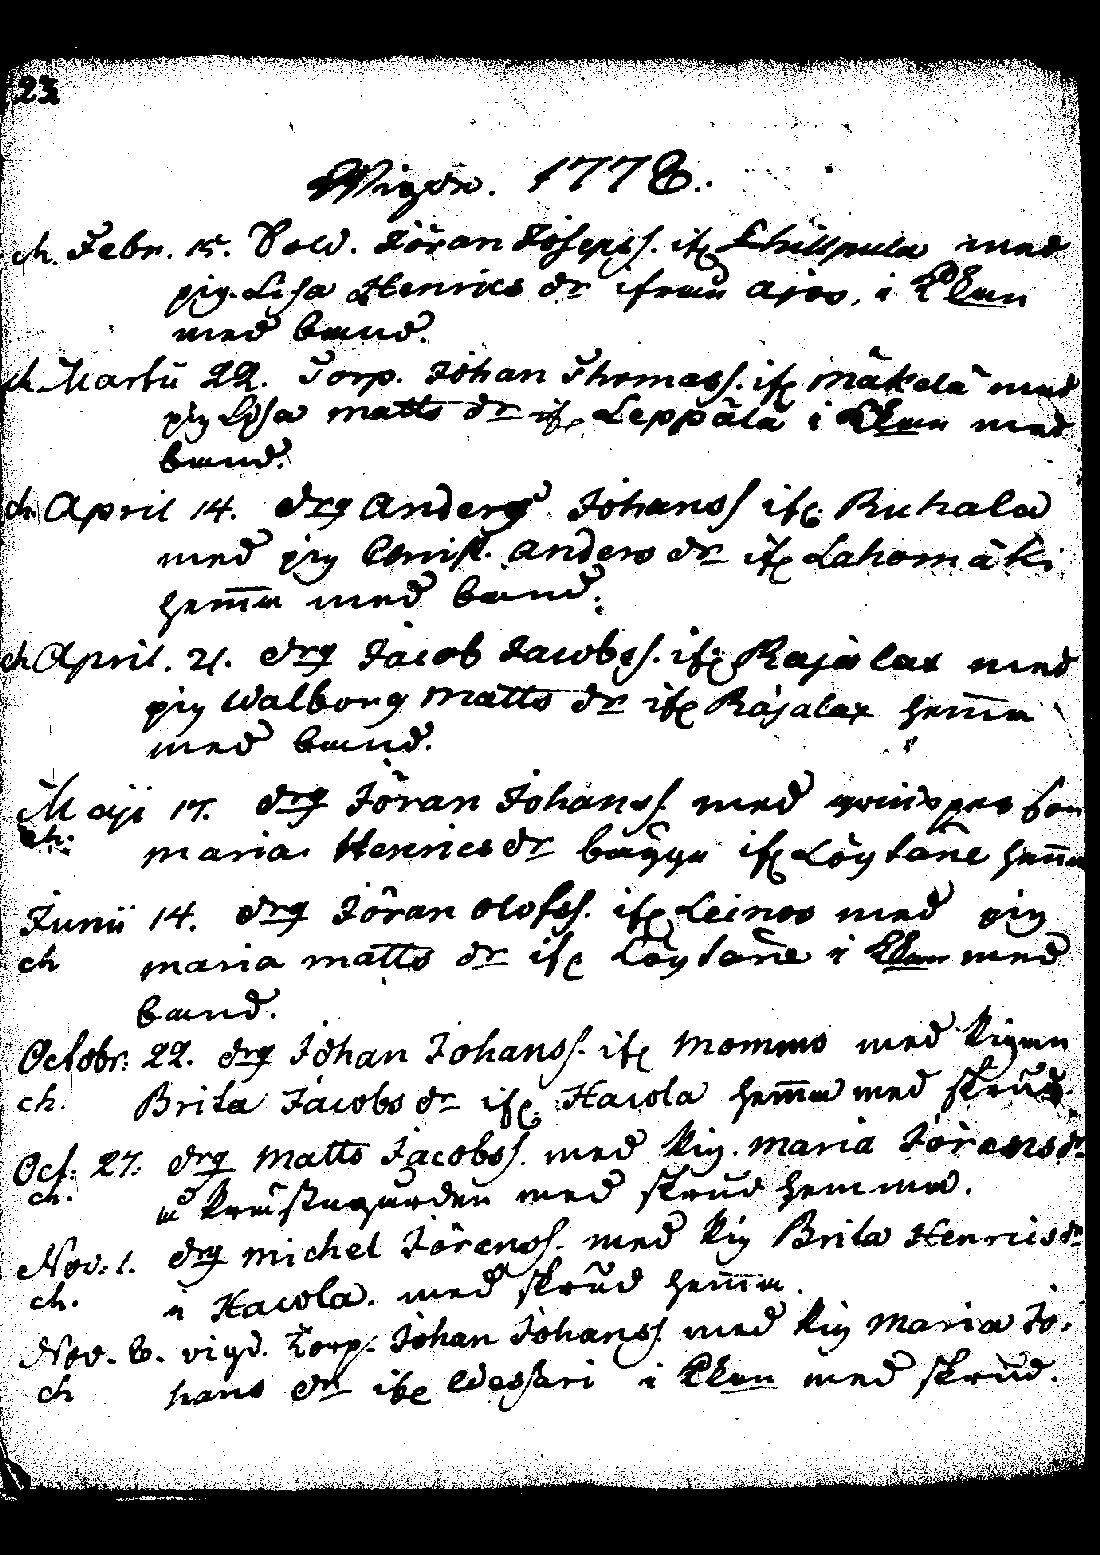 23
Wigde. 1778.
ch. Febr. 15. Sold. Jöran Josepss. ifr. med
pig. Lisa Henrics dr ifrån Ajos, i Kkan
med band.
ch Martii 22. Torp. Johan Thomass. ifr Mäkelä med
pig Lisa Matts dr ifr Leppälä i Kkan med
band.
ch. April 14. drg Anders Johanss ifr. Ruhala
med pig Christ. Anders dr ifr Lahomäki
hemma med band.
ch April. 21. drg Jacob Jacobss. ifr Rajalax med
pig Walborg Matts dr ifr Rajalax hemma
med band.
Maji 17. drg Jöran Johanss. med
ch. Maria Henrics dr bägge ifr Löytäne hemma
Junii 14. drg Jöran Olofss. ifr Leinos med pig
ch Maria Matts dr ifr Löytäne i Kkan med
band.
Octobr. 22. drg Johan Johanss. ifr Mommo med kigan
ch. Brita Jacobs dr ifr. Hacola hemma med skrud.
Oct: 27. drg Matts Jacobss. med kig. Maria Jörans dr
ch. med skrud hemma.
Nov. 1. drg Michel Jörenss. med kig Brita Henrics dr
ch. i Hacola. med skrud hemma.
Nov. 8. vigd. Torp. Johan Johanss med kig Maria Jo-
ch hans dr ifr Wessari i Kkan med skrud.